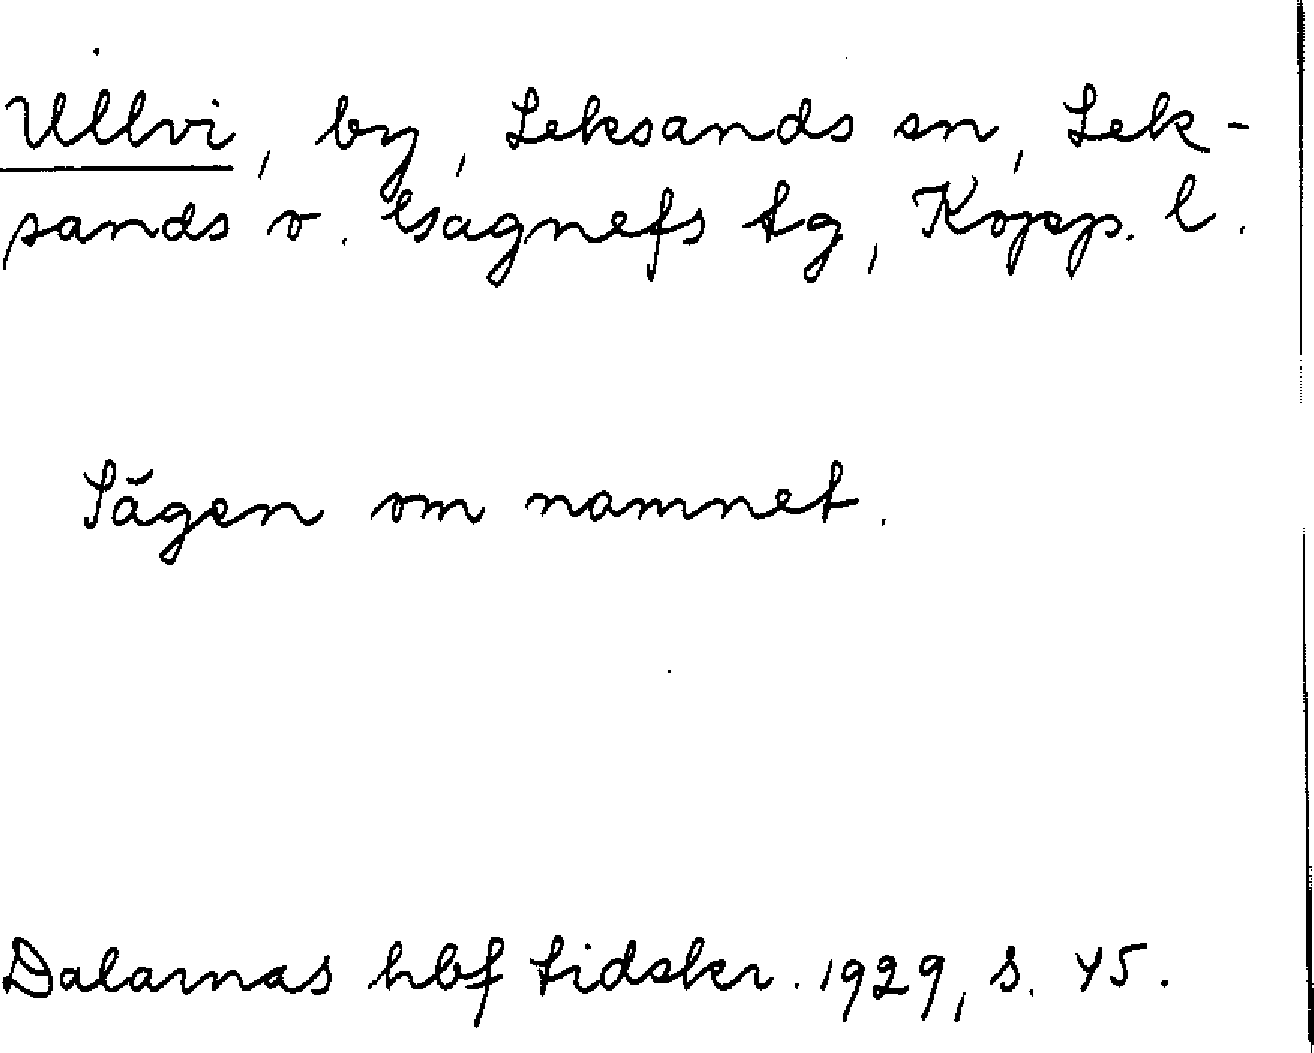 Ullvi, by, Leksands sn, Lek-
sands o. Gagnefs tg, Kopp. l.
Sägen om namnet.
Dalarnas hbf tidskr. 1929, s. 45.